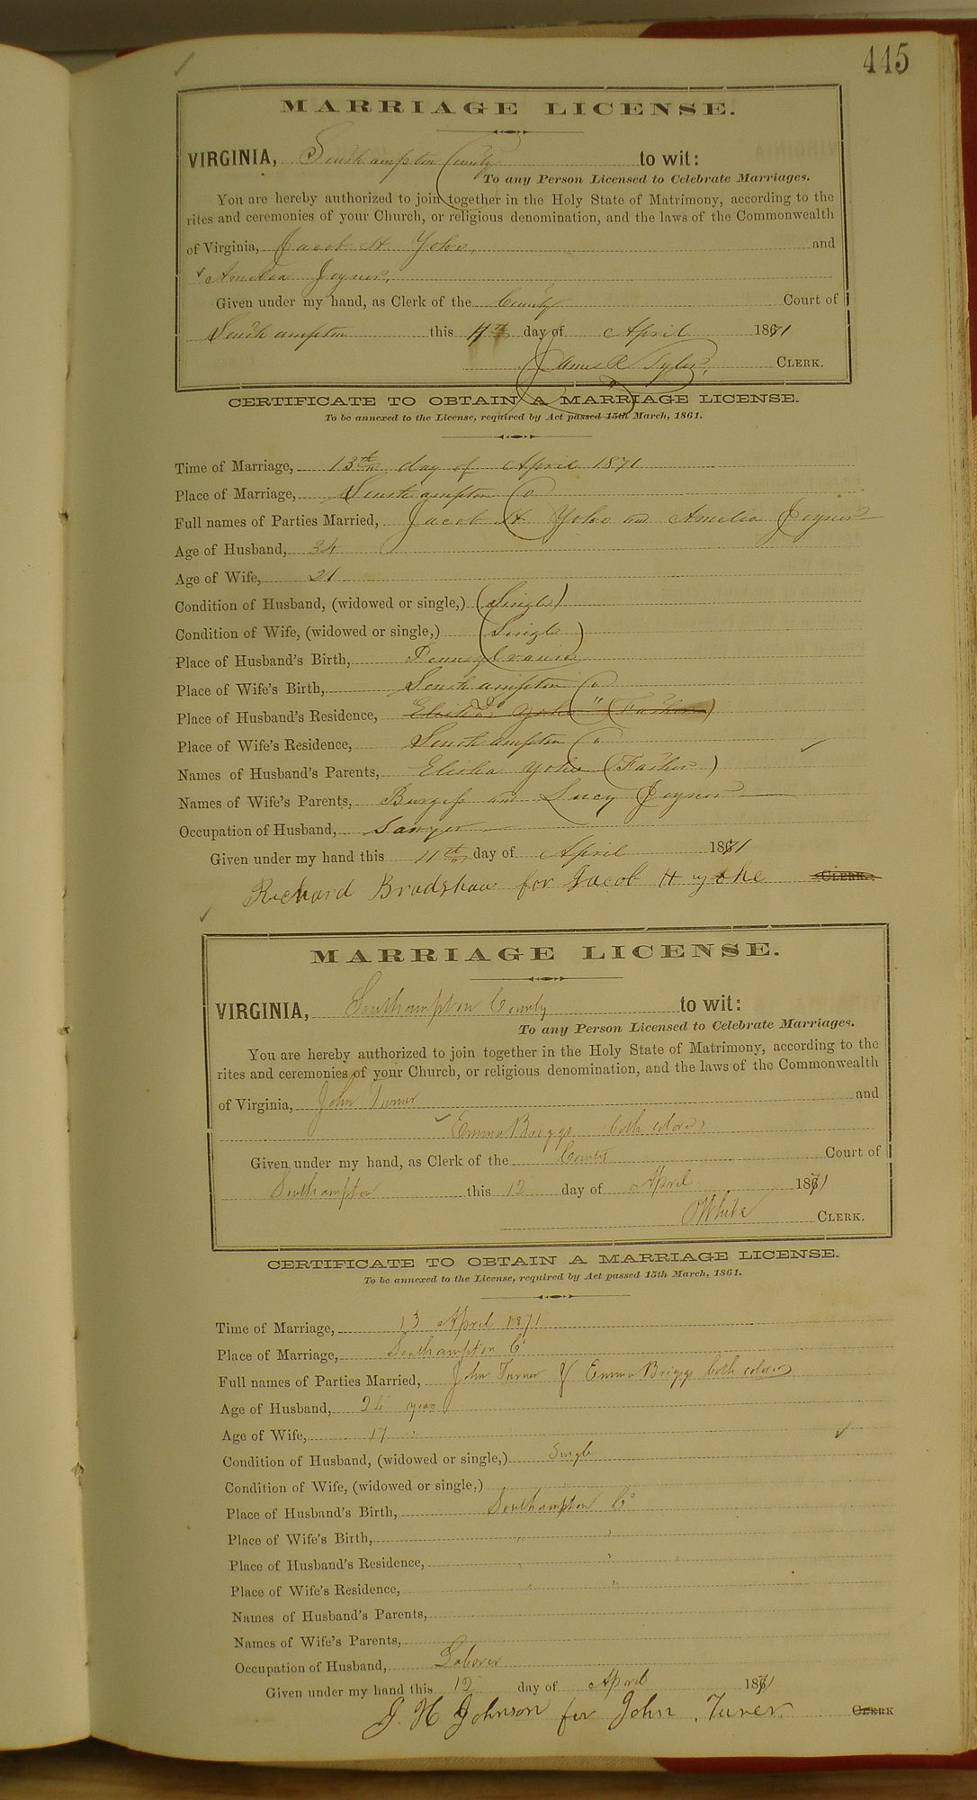 445
MARRIAGE LICENSE.
VIRGINIA, Southampton County to wit:
To any Person Licensed to Celebrate Marriages.
You are hereby authorized to join together in the Holy State of Matrimony, according to the
rites and ceremonies of your Church, or religious denomination, and the laws of the Commonwealth
of Virginia, Jacob H Yoho, and
Amelia Joyner,
Given under my hand, as Clerk of the County Court of
Southampton this 11th day of April 1871
James R Tyler, CLERK.
CERTIFICATE TO OBTAIN A MARRIAGE LICENSE.
To be annexed to the License, required by Act passed 15th March, 1861.
Time of Marriage, 13th day of April 1871
Place of Marriage, Southampton Co
Full names of Parties Married, Jacob H Yoho and Amelia Joyner
Age of Husband, 34
Age of Wife, 21
Condition of Husband, (widowed or single,) (Single)
Condition of Wife, (widowed or single,) (Single)
Place of Husband's Birth, Pennsylvania
Place of Wife's Birth, Southampton Co
Place of Husband's Residence, Do " (Father)
Place of Wife's Residence, Southampton Co
Names of Husband's Parents, Elisha Yoho (Father)
Names of Wife's Parents, Burgess and Lucy Joyner
Occupation of Husband, Sawyer
Given under my hand this 11th day of April 1871
Richard Bradshaw for Jacob H CLERK.
MARRIAGE LICENSE.
VIRGINIA, Southampton County to wit:
To any Person Licensed to Celebrate Marriages.
You are hereby authorized to join together in the Holy State of Matrimony, according to the
rites and ceremonies of your Church, or religious denomination, and the laws of the Commonwealth
of Virginia, John Turner and
Emma Briggs both colored
Given under my hand, as Clerk of the County Court of
Southampton this 12 day of April 1871
White CLERK.
CERTIFICATE TO OBTAIN A MARRIAGE LICENSE.
To be annexed to the License, required by Act passed 15th March, 1861.
Time of Marriage, 13 April 1871
Place of Marriage, Southampton Co
Full names of Parties Married, John Turner & Emma Briggs both colored
Age of Husband, 24 years
Age of Wife, 17 "
Condition of Husband, (widowed or single,) Single
Condition of Wife, (widowed or single,)
Place of Husband's Birth, Southampton Co
Place of Wife's Birth, " "
Place of Husband's Residence, " "
Place of Wife's Residence, " "
Names of Husband's Parents,
Names of Wife's Parents,
Occupation of Husband, Laborer
Given under my hand this 12 day of April 1871
J. H Johnson for John Turner CLERK